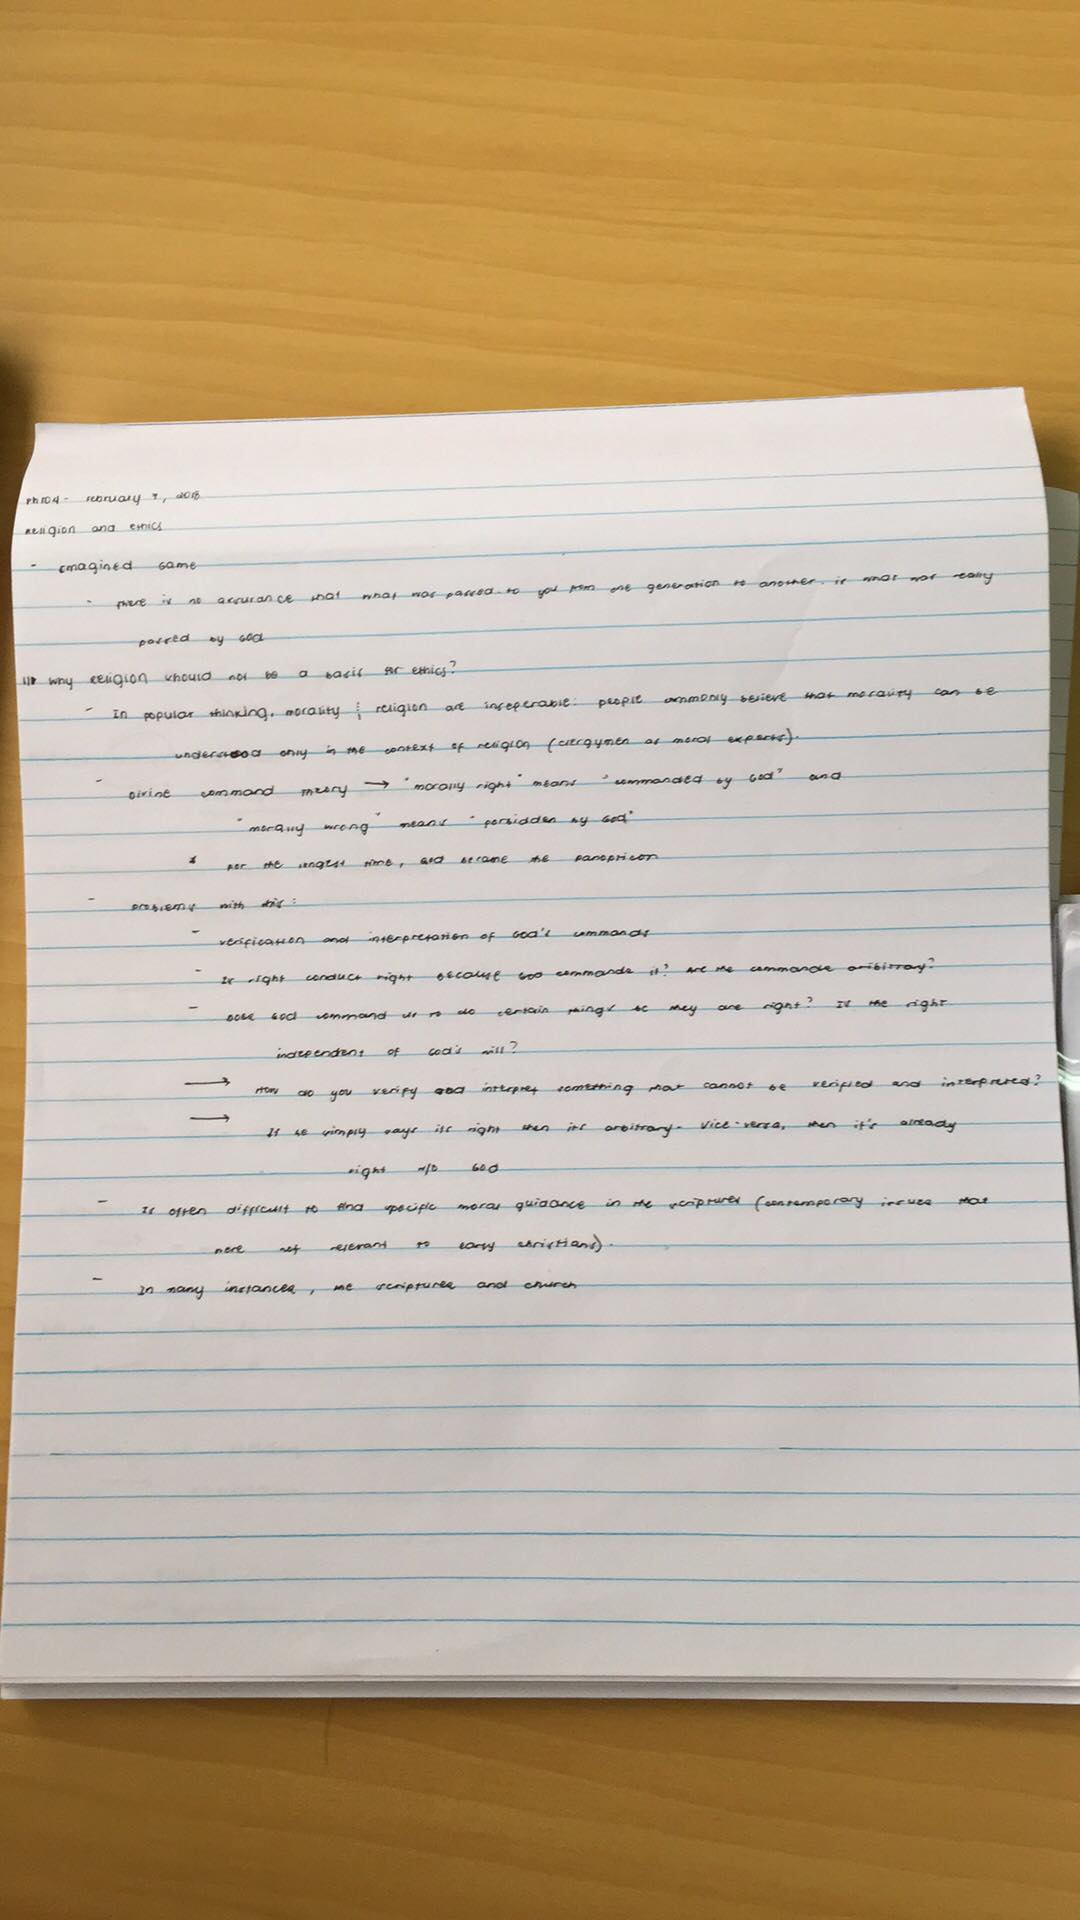 Ph104 - February 7, 2018
Religion and Ethics
- Imagined Game
- There is no assurance that what was passed to you from one generation to another is what was really
passed by God
Why Religion should not be a basis for ethics?
- In popular thinking, morality & religion are inseperable: people commonly believe that morality can be
understood only in the context of religion (clergymen as moral experts).
- Divine command theory → "morally right" means "commanded by God" and
"morally wrong" means "forbidden by God"
* For the longest time, God became the panopticon
- problems with this:
- verification and interpretation of God's commands
- Is right conduct right because God commands it? Are the commands aribitrary?
- Does God command us to do certain things bc they are right? Is the right
independent of God's will?
→ How do you verify and interpret something that cannot be verified and interpreted?
→ If he simply says its right then its arbitrary. Vice-versa, then it's already
right w/o God
- Is often difficult to find specific moral guidance in the scriptures (contemporary issues that
were not relevant to early christians).
- In many instances, the scriptures and church